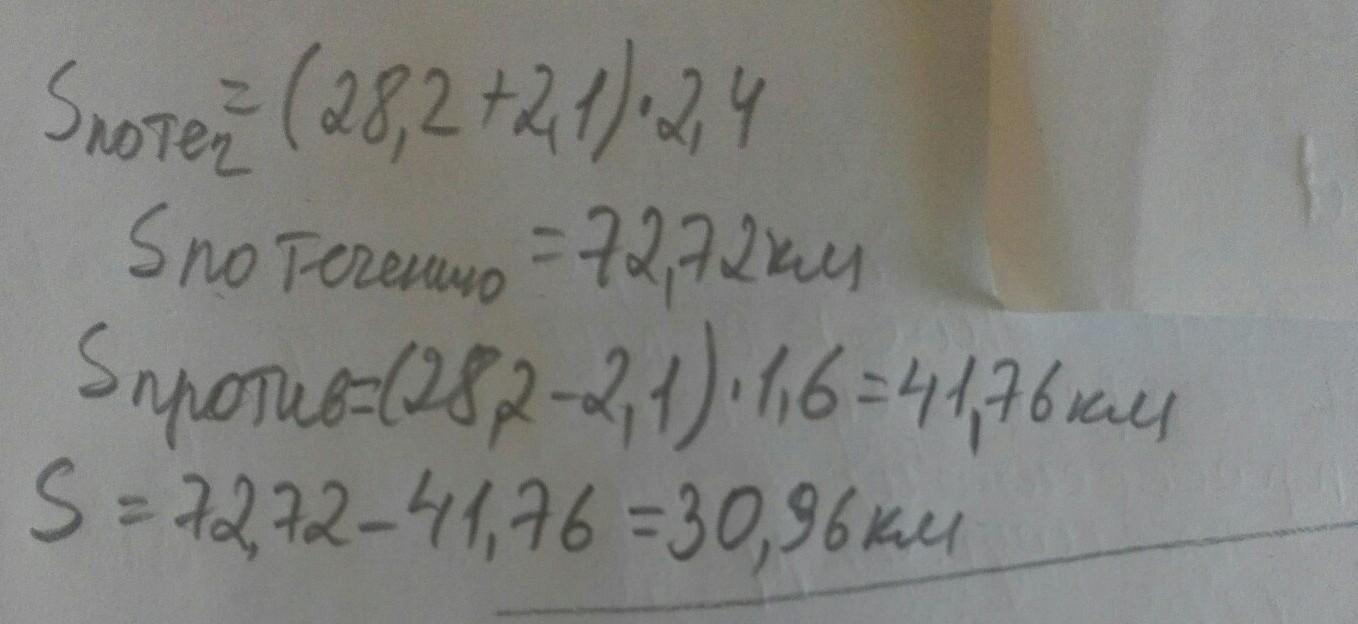 Sпотеч=(28,2+2,1)·2,4
Sпо течению=72,72км
Sпротив=(28,2-2,1)·1,6=41,76км
S=72,72-41,76=30,96км